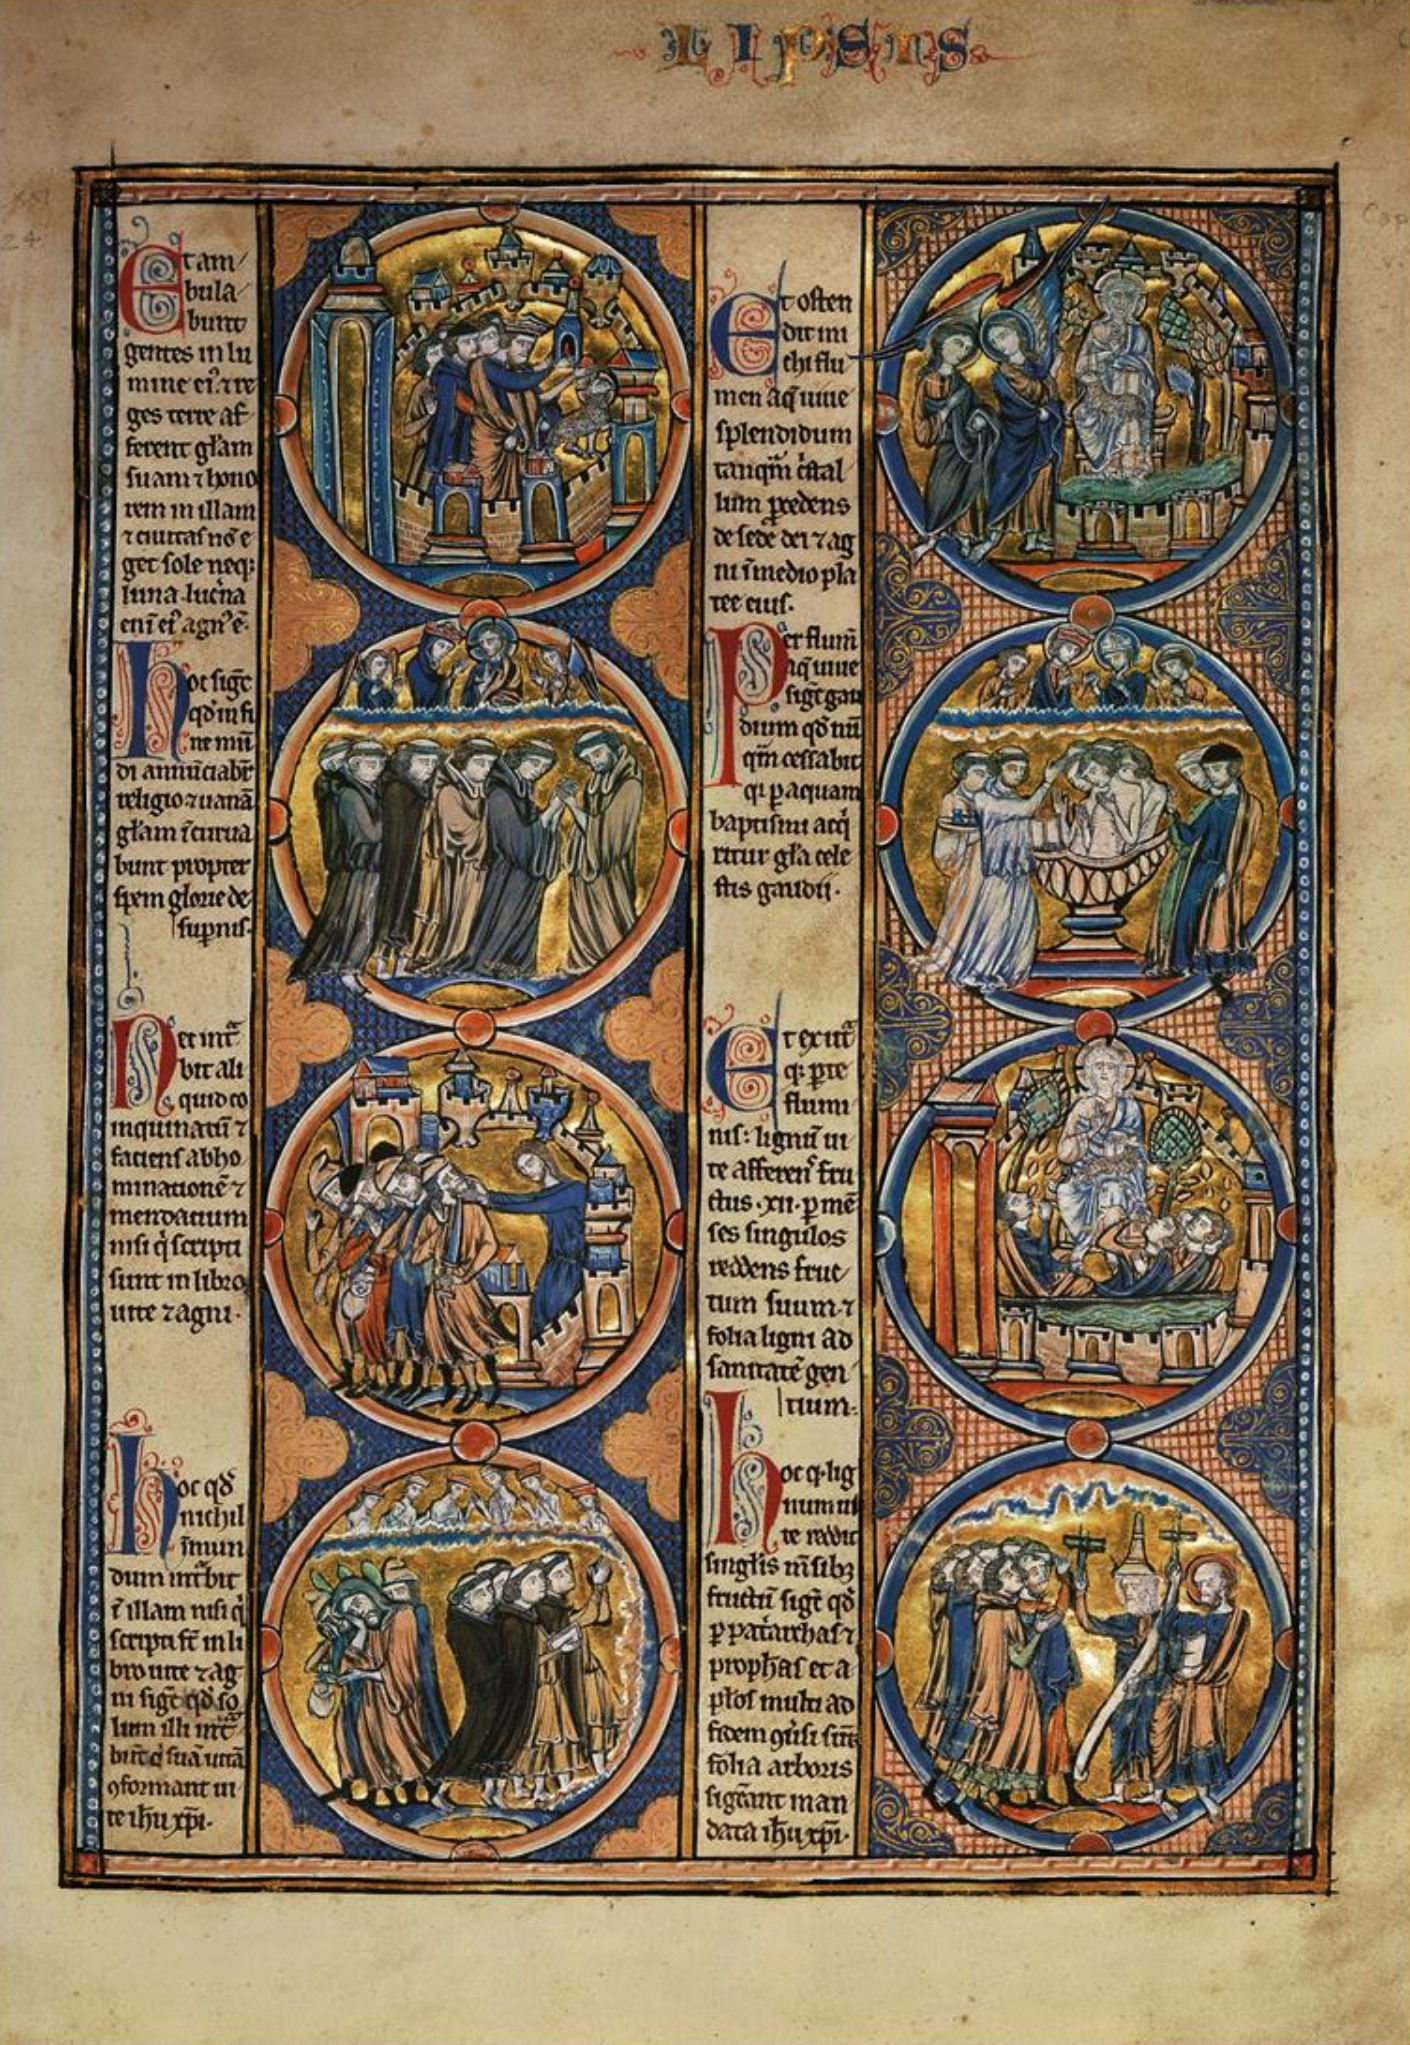 LIPSIS
24
Et am
bula
bunt
gentes in lu
mine ei⁊ re
ges terre af
ferent gl̄am
suam ⁊ hono
rem in illam
⁊ ciuitas nō e
get sole neq;
luna lucͥna
enī eiꝰ agnꝰ ē.
hoc sigᷓt
qd̄ in fi
ne mū
di annūciabr̄
religio ⁊ uanā
gl̄am īcurua
bunt propter
spem glorie de
suꝑnis.
Nec intᷓ
bit ali
quid co
inquinatū ⁊
faciens abho
minationē ⁊
mendatium
nisi qͥ scripti
sunt in libro
uite ⁊ agni.
hoc qd̄
nichil
īmun
dum intᷓbit
ī illam nisi qͥ
scripti st̄ in li
bro uite ⁊ ag
ni sigᷓt qd̄ so
lum illi intᷓ
būt qͥ sua uitā
ꝯformant ui
te ih̄u xp̄i.
Et osten
dit mi
chi flu
men aq̄ uiue
splendidum
tanqm̄ cͥstal
lum ꝓcedens
de sede dei ⁊ ag
ni ī medio pla
tee eius.
Per flum̄
aq̄ uiue
sigᷓt gau
dium qd̄ nū
qm̄ cessabit
qꝛ ꝑ aquam
baptismi acqͥ
ritur gl̄a cele
stis gaudii.
Et ex utᷓ
qꝫ ꝑte
flumi
nis: lignū ui
te afferens fru
ctus .xii. ꝑ mē
ses singulos
reddens fruc
tum suum ⁊
folia ligni ad
sanitatē gen
tium.
hoc qꝫ lig
num ui
te reddit
singlis m̄sibꝫ
fructū sigᷓt qd̄
ꝑ pat̄archas ⁊
proph̄as et a
pl̄os multi ad
fidem ꝯuͥsi sūt
folia arboris
sigᷓcant man
data ih̄u xp̄i.